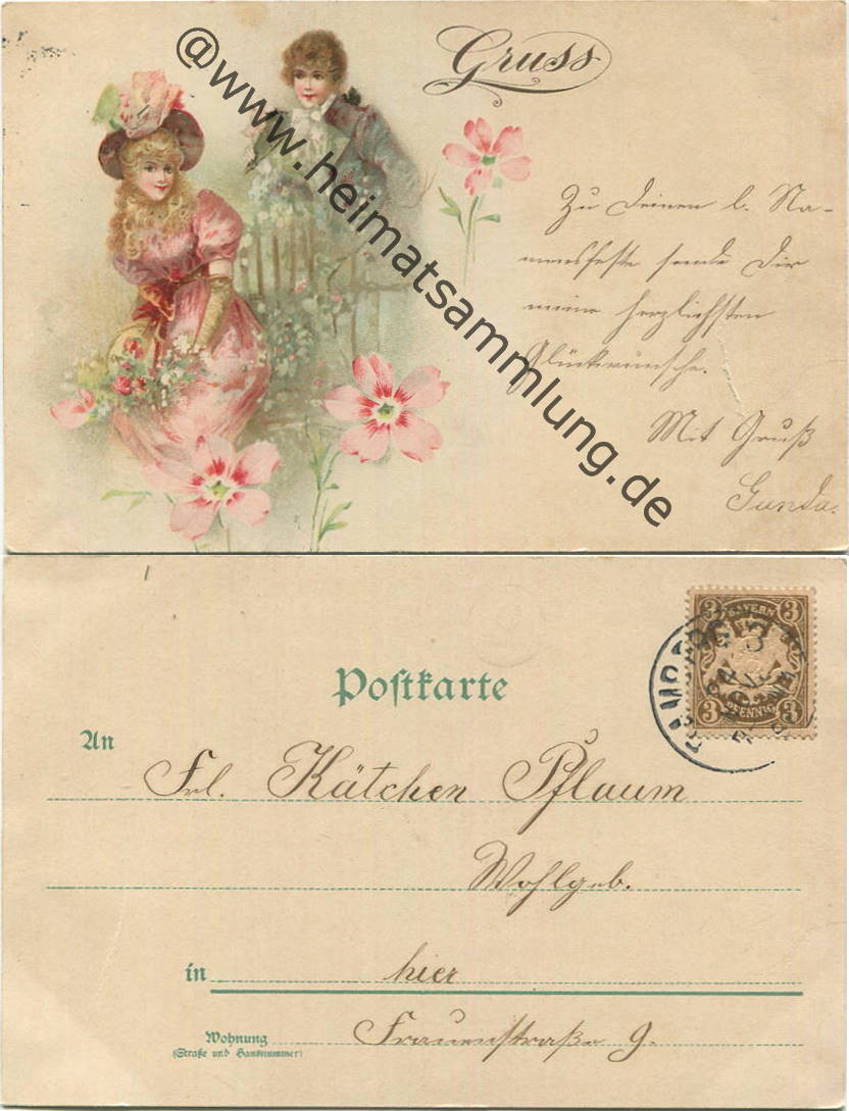 Gruss
@www.heimatsammlung.de
Zu Deinen l. Na-
mensfeste sende Dir
meine herzlichsten
Glückwünsche.
Mit Gruß
Gunda.
BAYERN
3 3
3 PFENNIG 3
BAMBERG
Postkarte
An
Frl. Kätchen Pflaum
Wohlgeb.
in hier
Wohnung
(Straße und Hausnummer)
Frauenstraße 9.